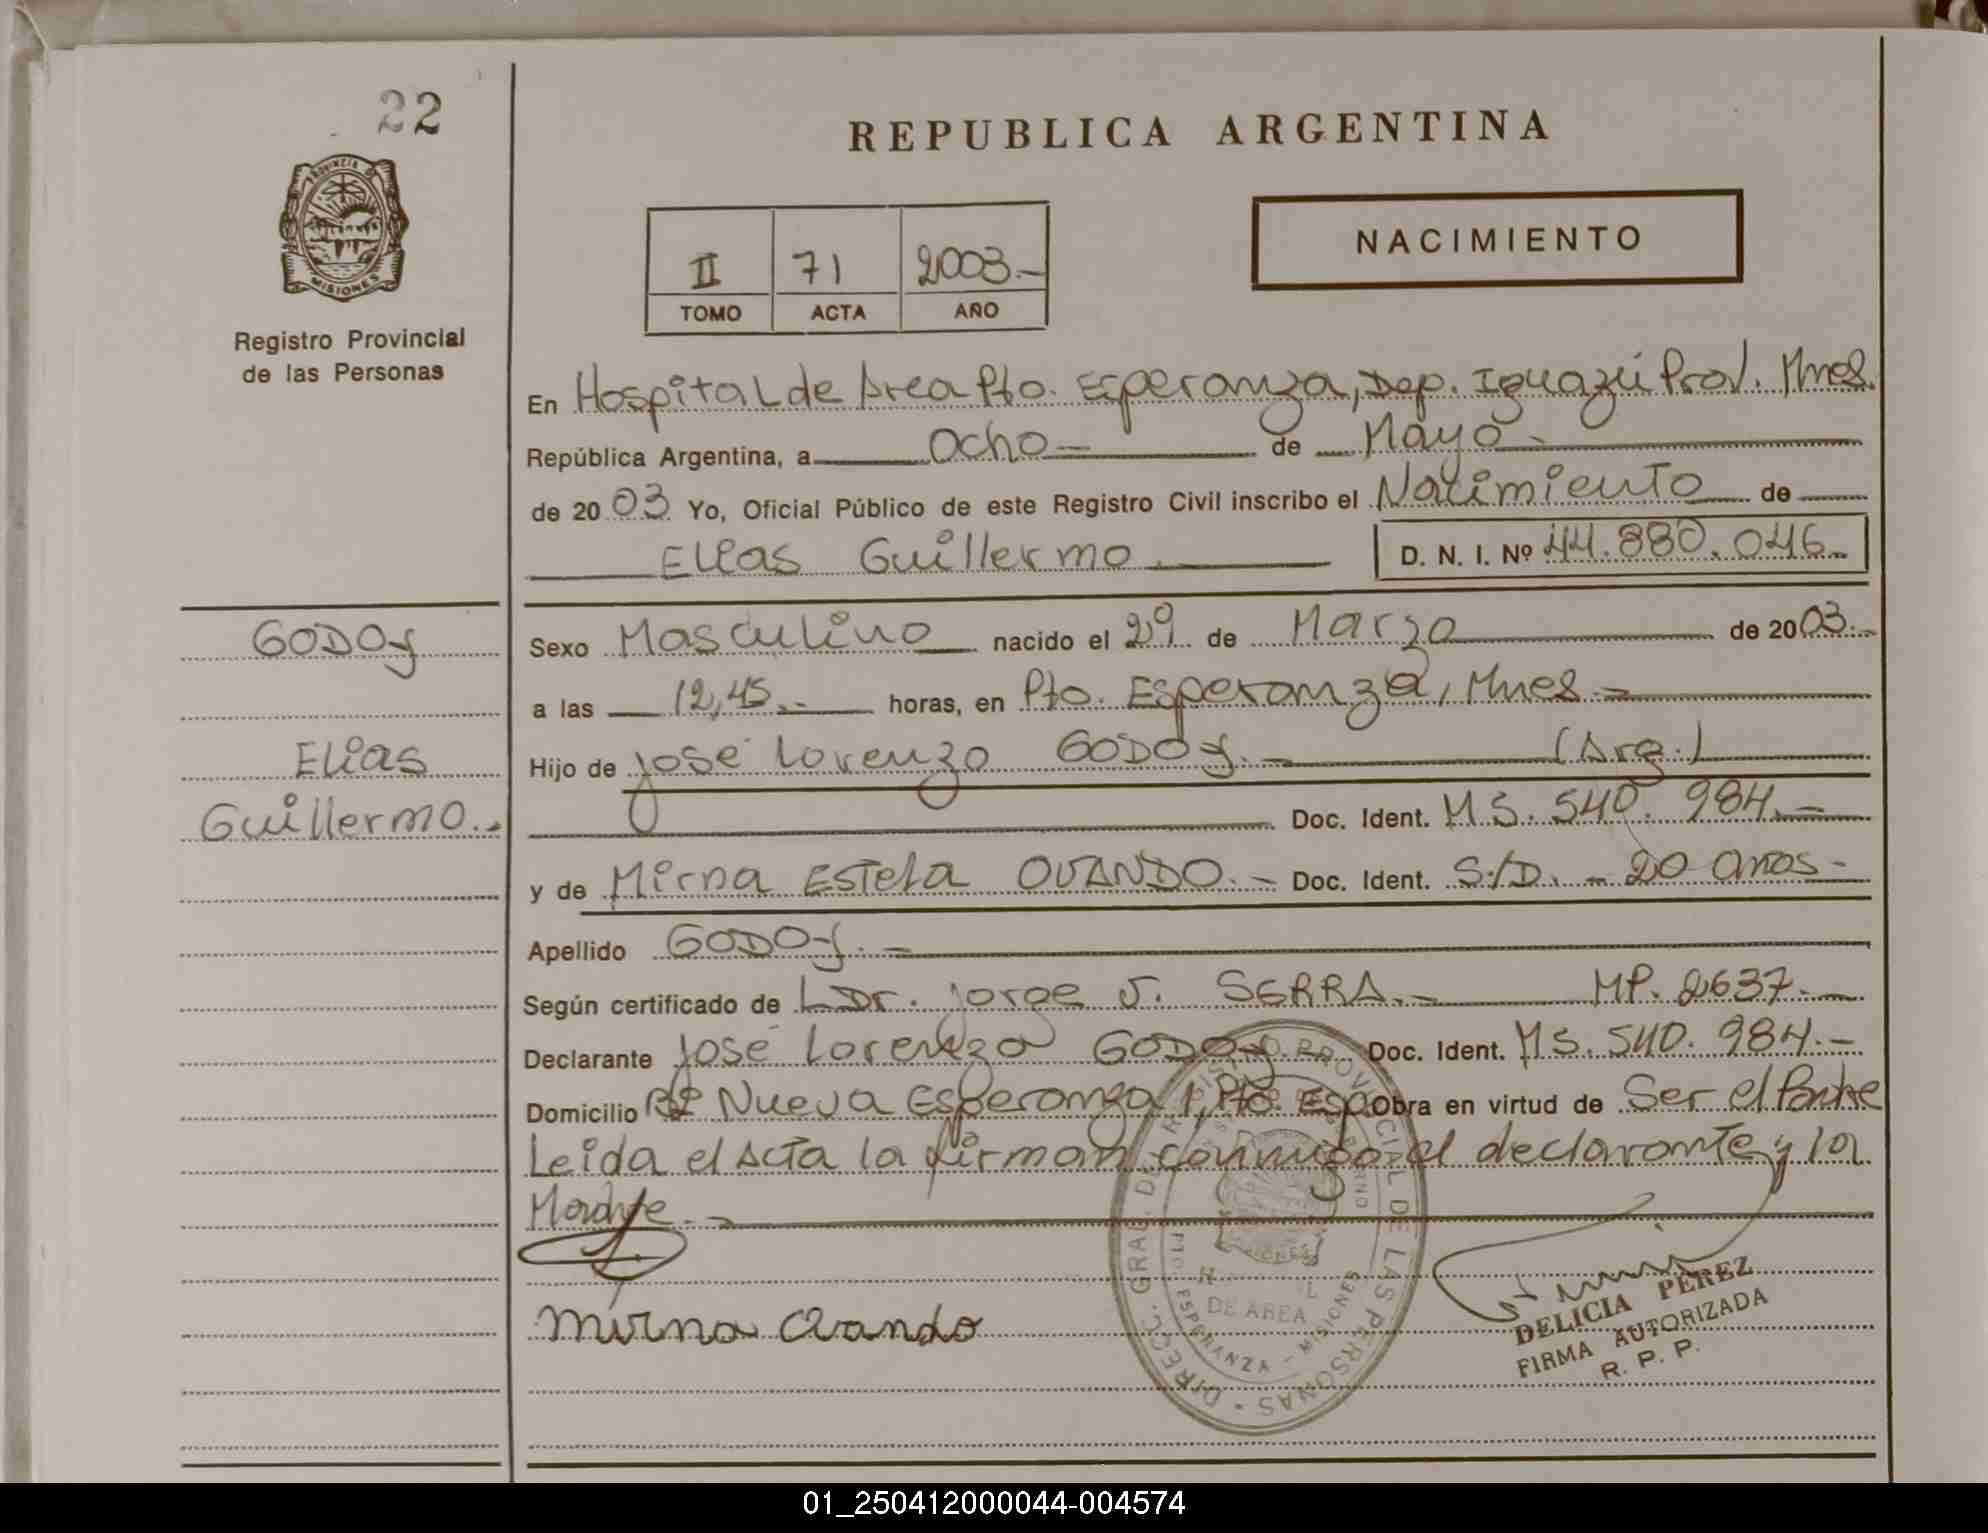 22
PROVINCIA DE
MISIONES
Registro Provincial
de las Personas
REPUBLICA ARGENTINA
NACIMIENTO
II 71 2003.-
TOMO ACTA AÑO
En Hospital de Area Pto. Esperanza, Dep. Iguazú Prov. Mnes.
República Argentina, a Ocho- de Mayo-
de 2003 Yo, Oficial Público de este Registro Civil inscribo el Nacimiento de
Elias Guillermo D. N. I. Nº 44.880.046-
GODOY Sexo Masculino nacido el 29 de Marzo de 2003.-
a las 12,45.- horas, en Pto. Esperanza, Mnes.-
Elias Hijo de José Lorenzo GODOY.- (Arg.)
Guillermo.- Doc. Ident. M S. 540. 984.-
y de Mirna Estela OVANDO.- Doc. Ident. S/D. - 20 años-
Apellido GODOY.-
Según certificado de Dr. Jorge J. SERRA.- MP. 2637.-
Declarante José Lorenzo GODOY Doc. Ident. M S. 540. 984.-
Domicilio Bº Nueva Esperanza 1, Pto. Esp. Obra en virtud de Ser el Padre
Leida el Acta la firman conmigo el declarante y la
Madre.-
Mirna Ovando
DIREC. GRAL. DEL REGISTRO PROVINCIAL DE LAS PERSONAS
DE AREA
ESPERANZA - MISIONES
DELICIA PEREZ
FIRMA AUTORIZADA
R. P. P.
01_250412000044-004574